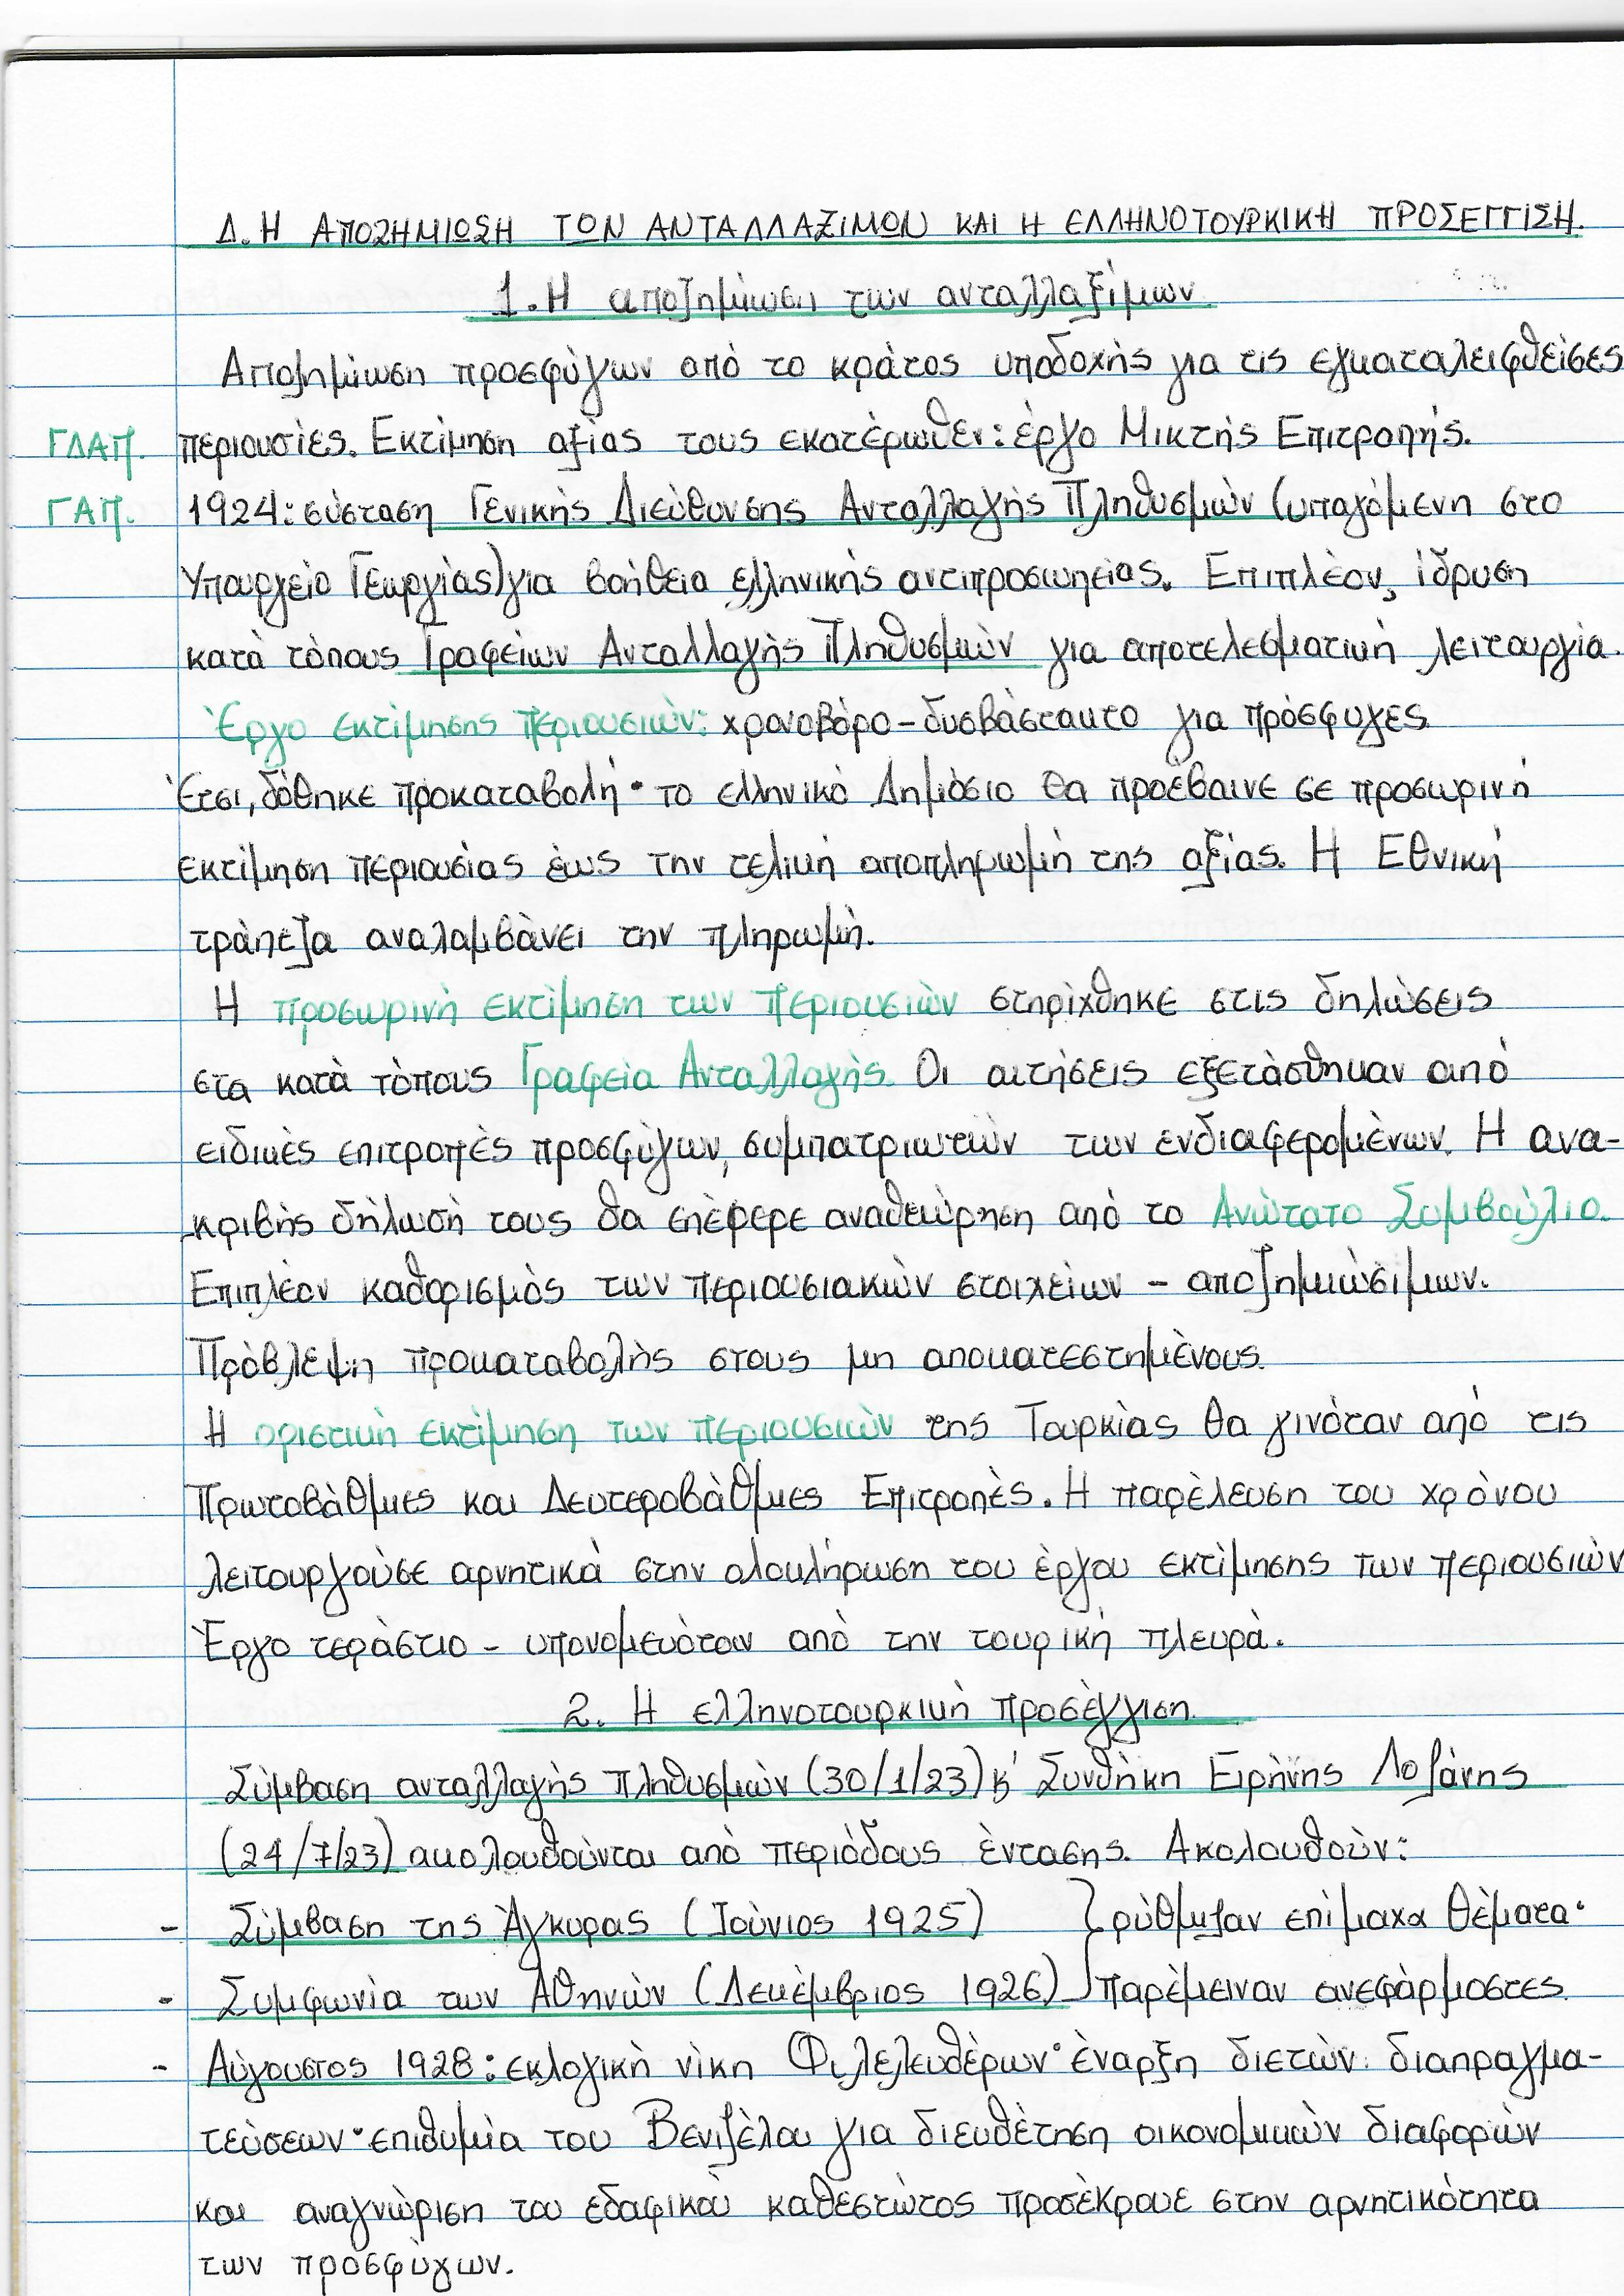 Δ. Η ΑΠΟΖΗΜΙΩΣΗ ΤΩΝ ΑΝΤΑΛΛΑΞΙΜΩΝ ΚΑΙ Η ΕΛΛΗΝΟΤΟΥΡΚΙΚΗ ΠΡΟΣΕΓΓΙΣΗ.
1. Η αποζημίωση των ανταλλαξίμων
Αποζημίωση προσφύγων από το κράτος υποδοχής για τις εγκαταλειφθείσες
ΓΔΑΠ. περιουσίες. Εκτίμηση αξίας τους εκατέρωθεν: έργο Μικτής Επιτροπής.
ΓΑΠ. 1924: σύσταση Γενικής Διεύθυνσης Ανταλλαγής Πληθυσμών (υπαγόμενη στο
Υπουργείο Γεωργίας) για βοήθεια ελληνικής αντιπροσωπείας. Επιπλέον, ίδρυση
κατά τόπους Γραφείων Ανταλλαγής Πληθυσμών για αποτελεσματική λειτουργία.
Έργο εκτίμησης περιουσιών: χρονοβόρο - δυσβάστακτο για πρόσφυγες
Έτσι, δόθηκε προκαταβολή· το ελληνικό Δημόσιο θα προέβαινε σε προσωρινή
εκτίμηση περιουσίας έως την τελική αποπληρωμή της αξίας. Η Εθνική
τράπεζα αναλαμβάνει την πληρωμή.
Η προσωρινή εκτίμηση των περιουσιών στηρίχθηκε στις δηλώσεις
στα κατά τόπους Γραφεία Ανταλλαγής. Οι αιτήσεις εξετάσθηκαν από
ειδικές επιτροπές προσφύγων, συμπατριωτών των ενδιαφερομένων. Η ανα-
κριβής δήλωσή τους θα επέφερε αναθεώρηση από το Ανώτατο Συμβούλιο.
Επιπλέον καθορισμός των περιουσιακών στοιχείων - αποζημιώσιμων.
Πρόβλεψη προκαταβολής στους μη αποκατεστημένους.
Η οριστική εκτίμηση των περιουσιών της Τουρκίας θα γινόταν από τις
Πρωτοβάθμιες και Δευτεροβάθμιες Επιτροπές. Η παρέλευση του χρόνου
λειτουργούσε αρνητικά στην ολοκλήρωση του έργου εκτίμησης των περιουσιών
Έργο τεράστιο - υπονομευόταν από την τουρική πλευρά.
2. Η ελληνοτουρκική προσέγγιση
Σύμβαση ανταλλαγής πληθυσμών (30/1/23) κ' Συνθήκη Ειρήνης Λοζάνης
(24/7/23) ακολουθούνται από περιόδους έντασης. Ακολουθούν:
- Σύμβαση της Άγκυρας (Ιούνιος 1925) } ρύθμιζαν επίμαχα θέματα·
- Συμφωνία των Αθηνών (Δεκέμβριος 1926) παρέμειναν ανεφάρμοστες
- Αύγουστος 1928: εκλογική νίκη Φιλελευθέρων· έναρξη διετών διαπραγμα-
τεύσεων· επιθυμία του Βενιζέλου για διευθέτηση οικονομικών διαφορών
και αναγνώριση του εδαφικού καθεστώτος προσέκρουε στην αρνητικότητα
των προσφύγων.